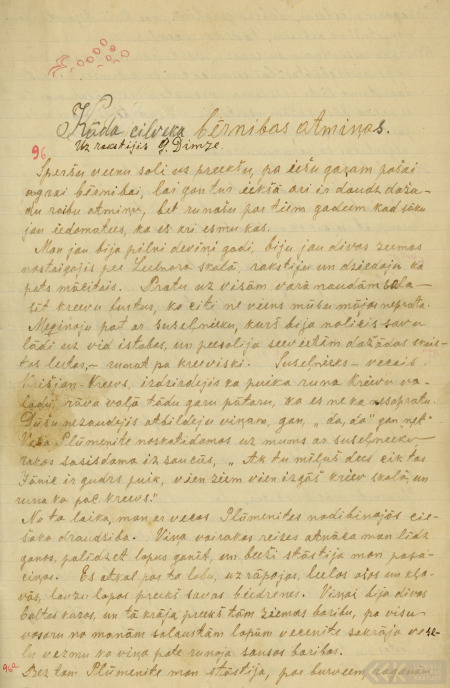 Kāda cilveka bērnibas atmiņas.
Uz rakstijis J. Dimze.
96.
Speršu veenu soli uz preekšu, pa eešu gaŗam pašai
agrai bērnibai, lai gan tur eekšā ari ir daudz daža-
du raibu atmiņu, bet runašu par teem gadeem kad sāku
jau eedomatees, ka es ari esmu kas.
Man jau bija pilni deviņi gadi, biju jau divas zeemas
nostaigajis pee skolā, rakstiju un dziedaju ka
pats mācitais. Pratu uz visām vara naudām
sit kreevu burtus, ko citi ne veens mūsu mājās neprata.
Meginaju pat ar suseļneeku, kurš bija nolicis savu
lādi uz vid istabas, un peesolija seeveešem dažādas skais-
tas leetas, – runat pa kreeviski. Suseļneeks – vecais
Krišjan-Kreevs, izdzirdejis ka puika runa Kreevu va-
lodu, rāva vaļā tādu gaŗu pātaru, ka es ne ka nesapratu.
Dūšu nezaudejis atbildeju viņam, gan „da, da” gan „net”.
Veca Plūmenite noskatidamos uz mums ar suseļneeku
rokas sasisdama izsaucās, „Ak tu miļuš dees cik tas
Jānie ir gudrs puik, vien ziem vien izgāš kriev skolā, un
runa ka pac kreevs.”
No ta laika, man ar vecas Plūmenites nodibinajās cie-
šaka draudziba. Viņa vairakas reises atnāca man līdz
ganos, palidzēt lopus ganit, un beeži stāstija man pasa-
ciņas. Es atkal par to labu, uz rāpojos, leelos ošos un kļa-
vās, lauzu lapas preekš savas beedrenes. Viņai bija divas
baltas kazas, un tā krāja preekš tām ziemas baribu, pa visu
vasaru no manām salauztām lapām vecenite sakrāja vese-
lu vezmu ka viņa pate runaja sausas baribas.
96a
Bez tam Plūmenite man stāstija, par burveem,